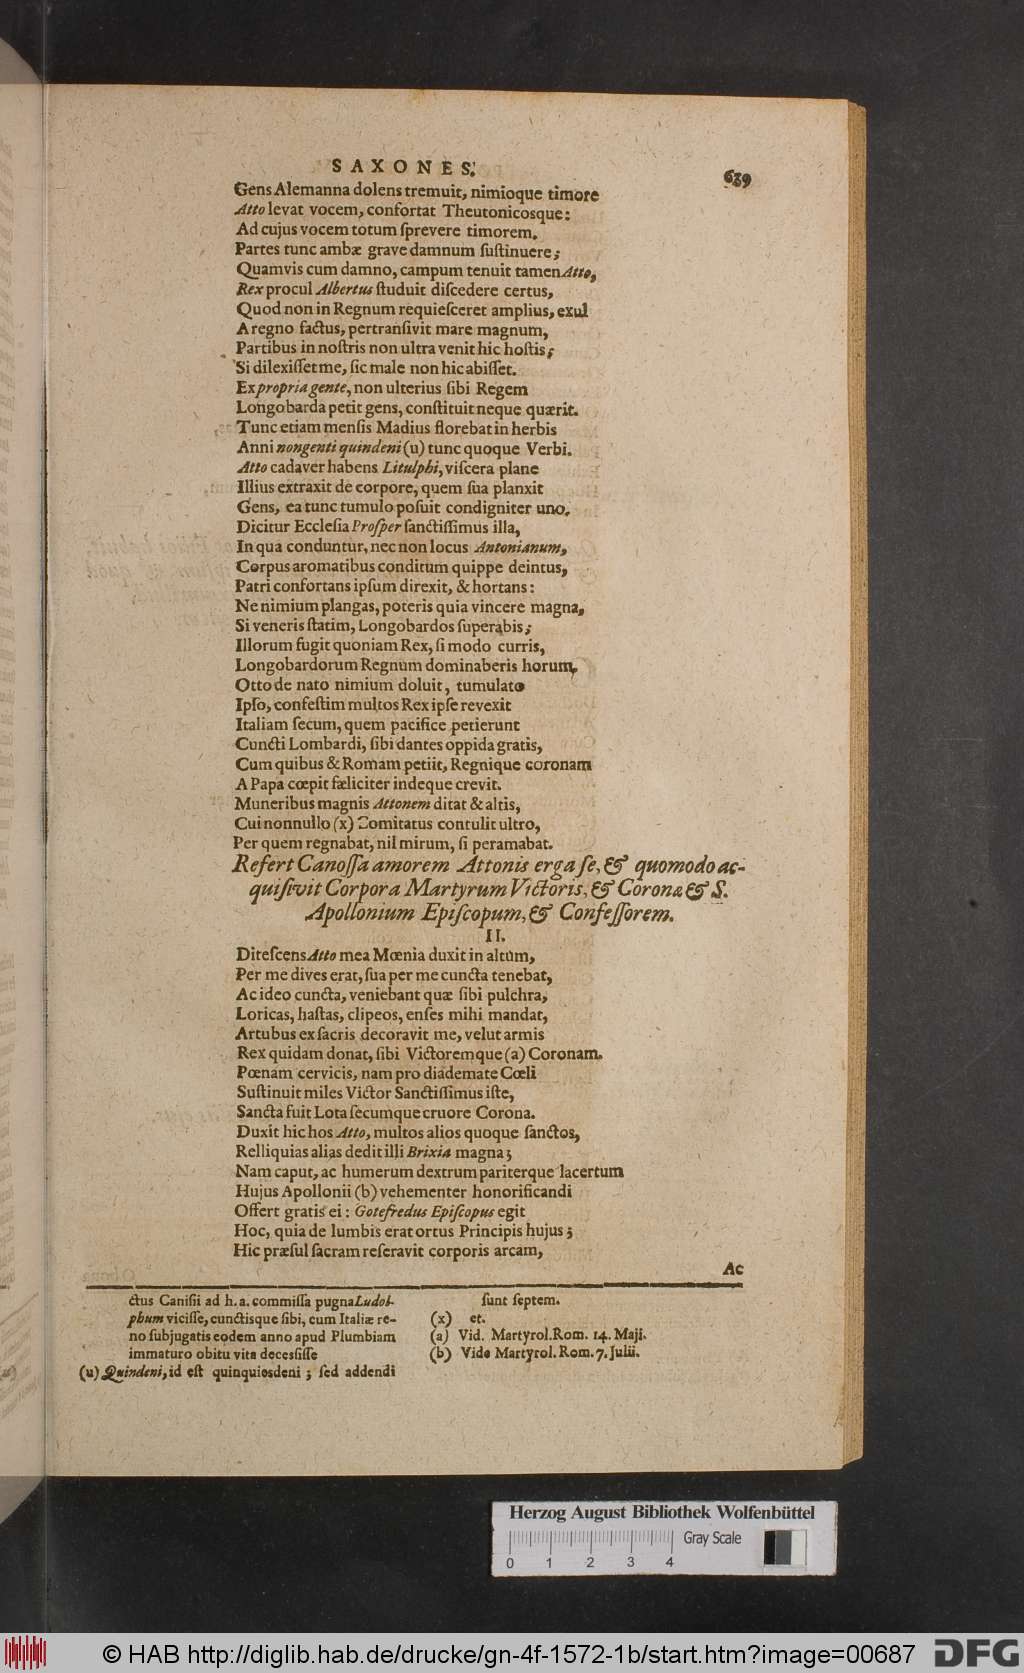 SAXONES. 639
Gens Alemanna dolens tremuit, nimioque timore
Atto levat vocem, confortat Theutonicosque:
Ad cujus vocem totum ſprevere timorem.
Partes tunc ambæ grave damnum ſuſtinuere;
Quamvis cum damno, campum tenuit tamen Atto,
Rex procul Albertus ſtuduit diſcedere certus,
Quod non in Regnum requieſceret amplius, exul
A regno factus, pertranſivit mare magnum,
Partibus in noſtris non ultra venit hic hoſtis;
Si dilexiſſet me, ſic male non hic abiſſet.
Ex propria gente, non ulterius ſibi Regem
Longobarda petit gens, conſtituit neque quærit.
Tunc etiam menſis Madius florebat in herbis
Anni nongenti quindeni (u) tunc quoque Verbi.
Atto cadaver habens Litulphi, viſcera plane
Illius extraxit de corpore, quem ſua planxit
Gens, ea tunc tumulo poſuit condigniter uno.
Dicitur Eccleſia Proſper ſanctiſſimus illa,
In qua conduntur, nec non locus Antonianum,
Corpus aromatibus conditum quippe deintus,
Patri confortans ipſum direxit, & hortans:
Ne nimium plangas, poteris quia vincere magna,
Si veneris ſtatim, Longobardos ſuperabis;
Illorum fugit quoniam Rex, ſi modo curris,
Longobardorum Regnum dominaberis horum,
Otto de nato nimium doluit, tumulato
Ipſo, confeſtim multos Rex ipſe revexit
Italiam ſecum, quem pacifice petierunt
Cuncti Lombardi, ſibi dantes oppida gratis,
Cum quibus & Romam petiit, Regnique coronam
A Papa cœpit fæliciter indeque crevit.
Muneribus magnis Attonem ditat & altis,
Cui nonnullo (x) Comitatus contulit ultro,
Per quem regnabat, nil mirum, ſi peramabat.
Refert Canoſſa amorem Attonis erga ſe, & quomodo ac-
quiſivit Corpora Martyrum Victoris, & Coronæ & S.
Apollonium Epiſcopum, & Confeſſorem.
II.
Diteſcens Atto mea Mœnia duxit in altum,
Per me dives erat, ſua per me cuncta tenebat,
Ac ideo cuncta, veniebant quæ ſibi pulchra,
Loricas, haſtas, clipeos, enſes mihi mandat,
Artubus ex ſacris decoravit me, velut armis
Rex quidam donat, ſibi Victoremque (a) Coronam.
Pœnam cervicis, nam pro diademate Cœli
Suſtinuit miles Victor Sanctiſſimus iſte,
Sancta fuit Lota ſecumque cruore Corona.
Duxit hic hos Atto, multos alios quoque ſanctos,
Relliquias alias dedit illi Brixia magna;
Nam caput, ac humerum dextrum pariterque lacertum
Hujus Apollonii (b) vehementer honorificandi
Offert gratis ei: Gotefredus Epiſcopus egit
Hoc, quia de lumbis erat ortus Principis hujus;
Hic præſul ſacram reſeravit corporis arcam,
Ac
ctus Caniſii ad h. a. commiſſa pugna Ludol-
phum viciſſe, cunctisque ſibi, cum Italiæ re-
no ſubjugatis eodem anno apud Plumbiam
immaturo obitu vita deceſſiſſe
(u) Quindeni, id eſt quinquiesdeni; ſed addendi
ſunt ſeptem.
(x) et.
(a) Vid. Martyrol. Rom. 14. Maji.
(b) Vide Martyrol. Rom. 7. Julii.
Herzog August Bibliothek Wolfenbüttel
Gray Scale
0 1 2 3 4
© HAB http://diglib.hab.de/drucke/gn-4f-1572-1b/start.htm?image=00687 DFG